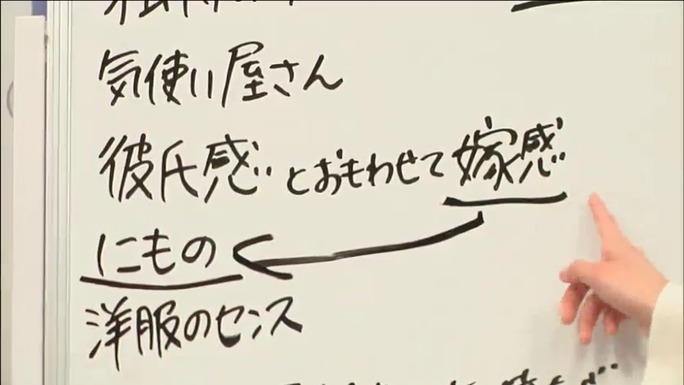 気使い屋さん
彼氏感とおもわせて嫁感
にもの
洋服のセンス